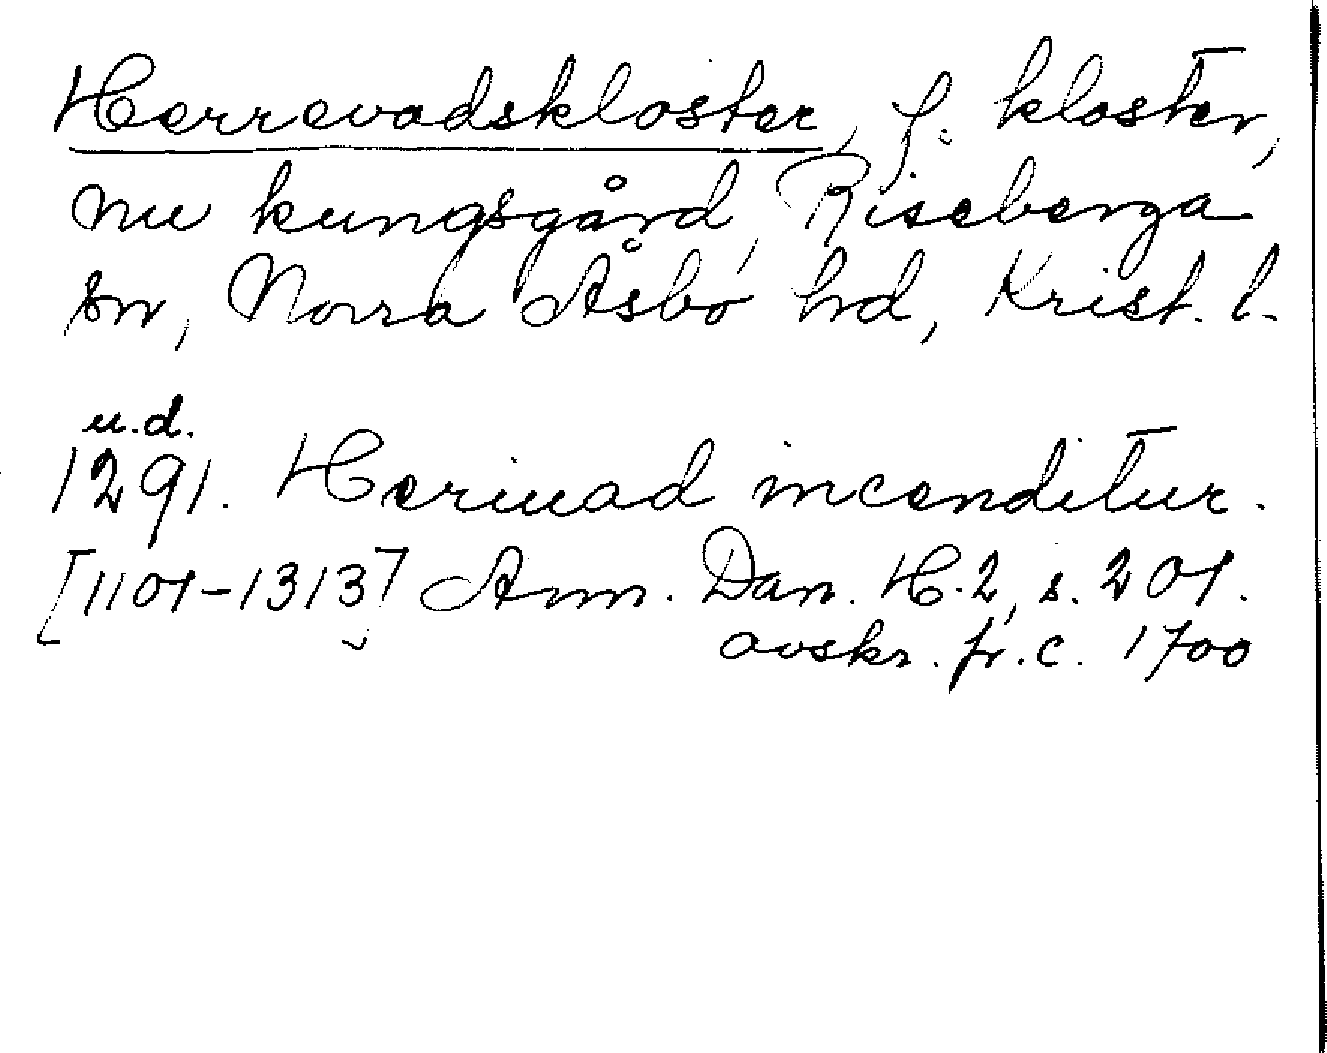 Herrevadskloster, f. kloster,
nu kungsgård, Riseberga
sn, Norra Åsbo hd, Krist. l.
u.d.
1291. Heriuad incenditur.
[1101-1313] Ann. Dan. H.2, s. 201.
avskr. fr. c. 1700